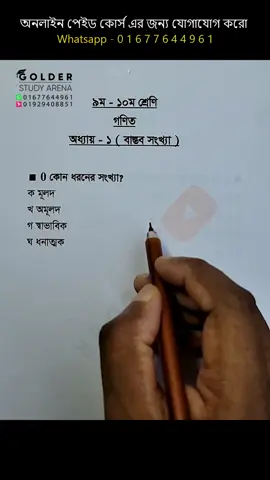 অনলাইন পেইড কোর্স এর জন্য যোগাযোগ করো
Whatsapp - 0 1 6 7 7 6 4 4 9 6 1
GOLDER
STUDY ARENA
01677644961
01929408851
৯ম - ১০ম শ্রেণি
গণিত
অধ্যায় - ১ ( বাস্তব সংখ্যা )
■ 0 কোন ধরনের সংখ্যা?
ক মূলদ
খ অমূলদ
গ স্বাভাবিক
ঘ ধনাত্মক